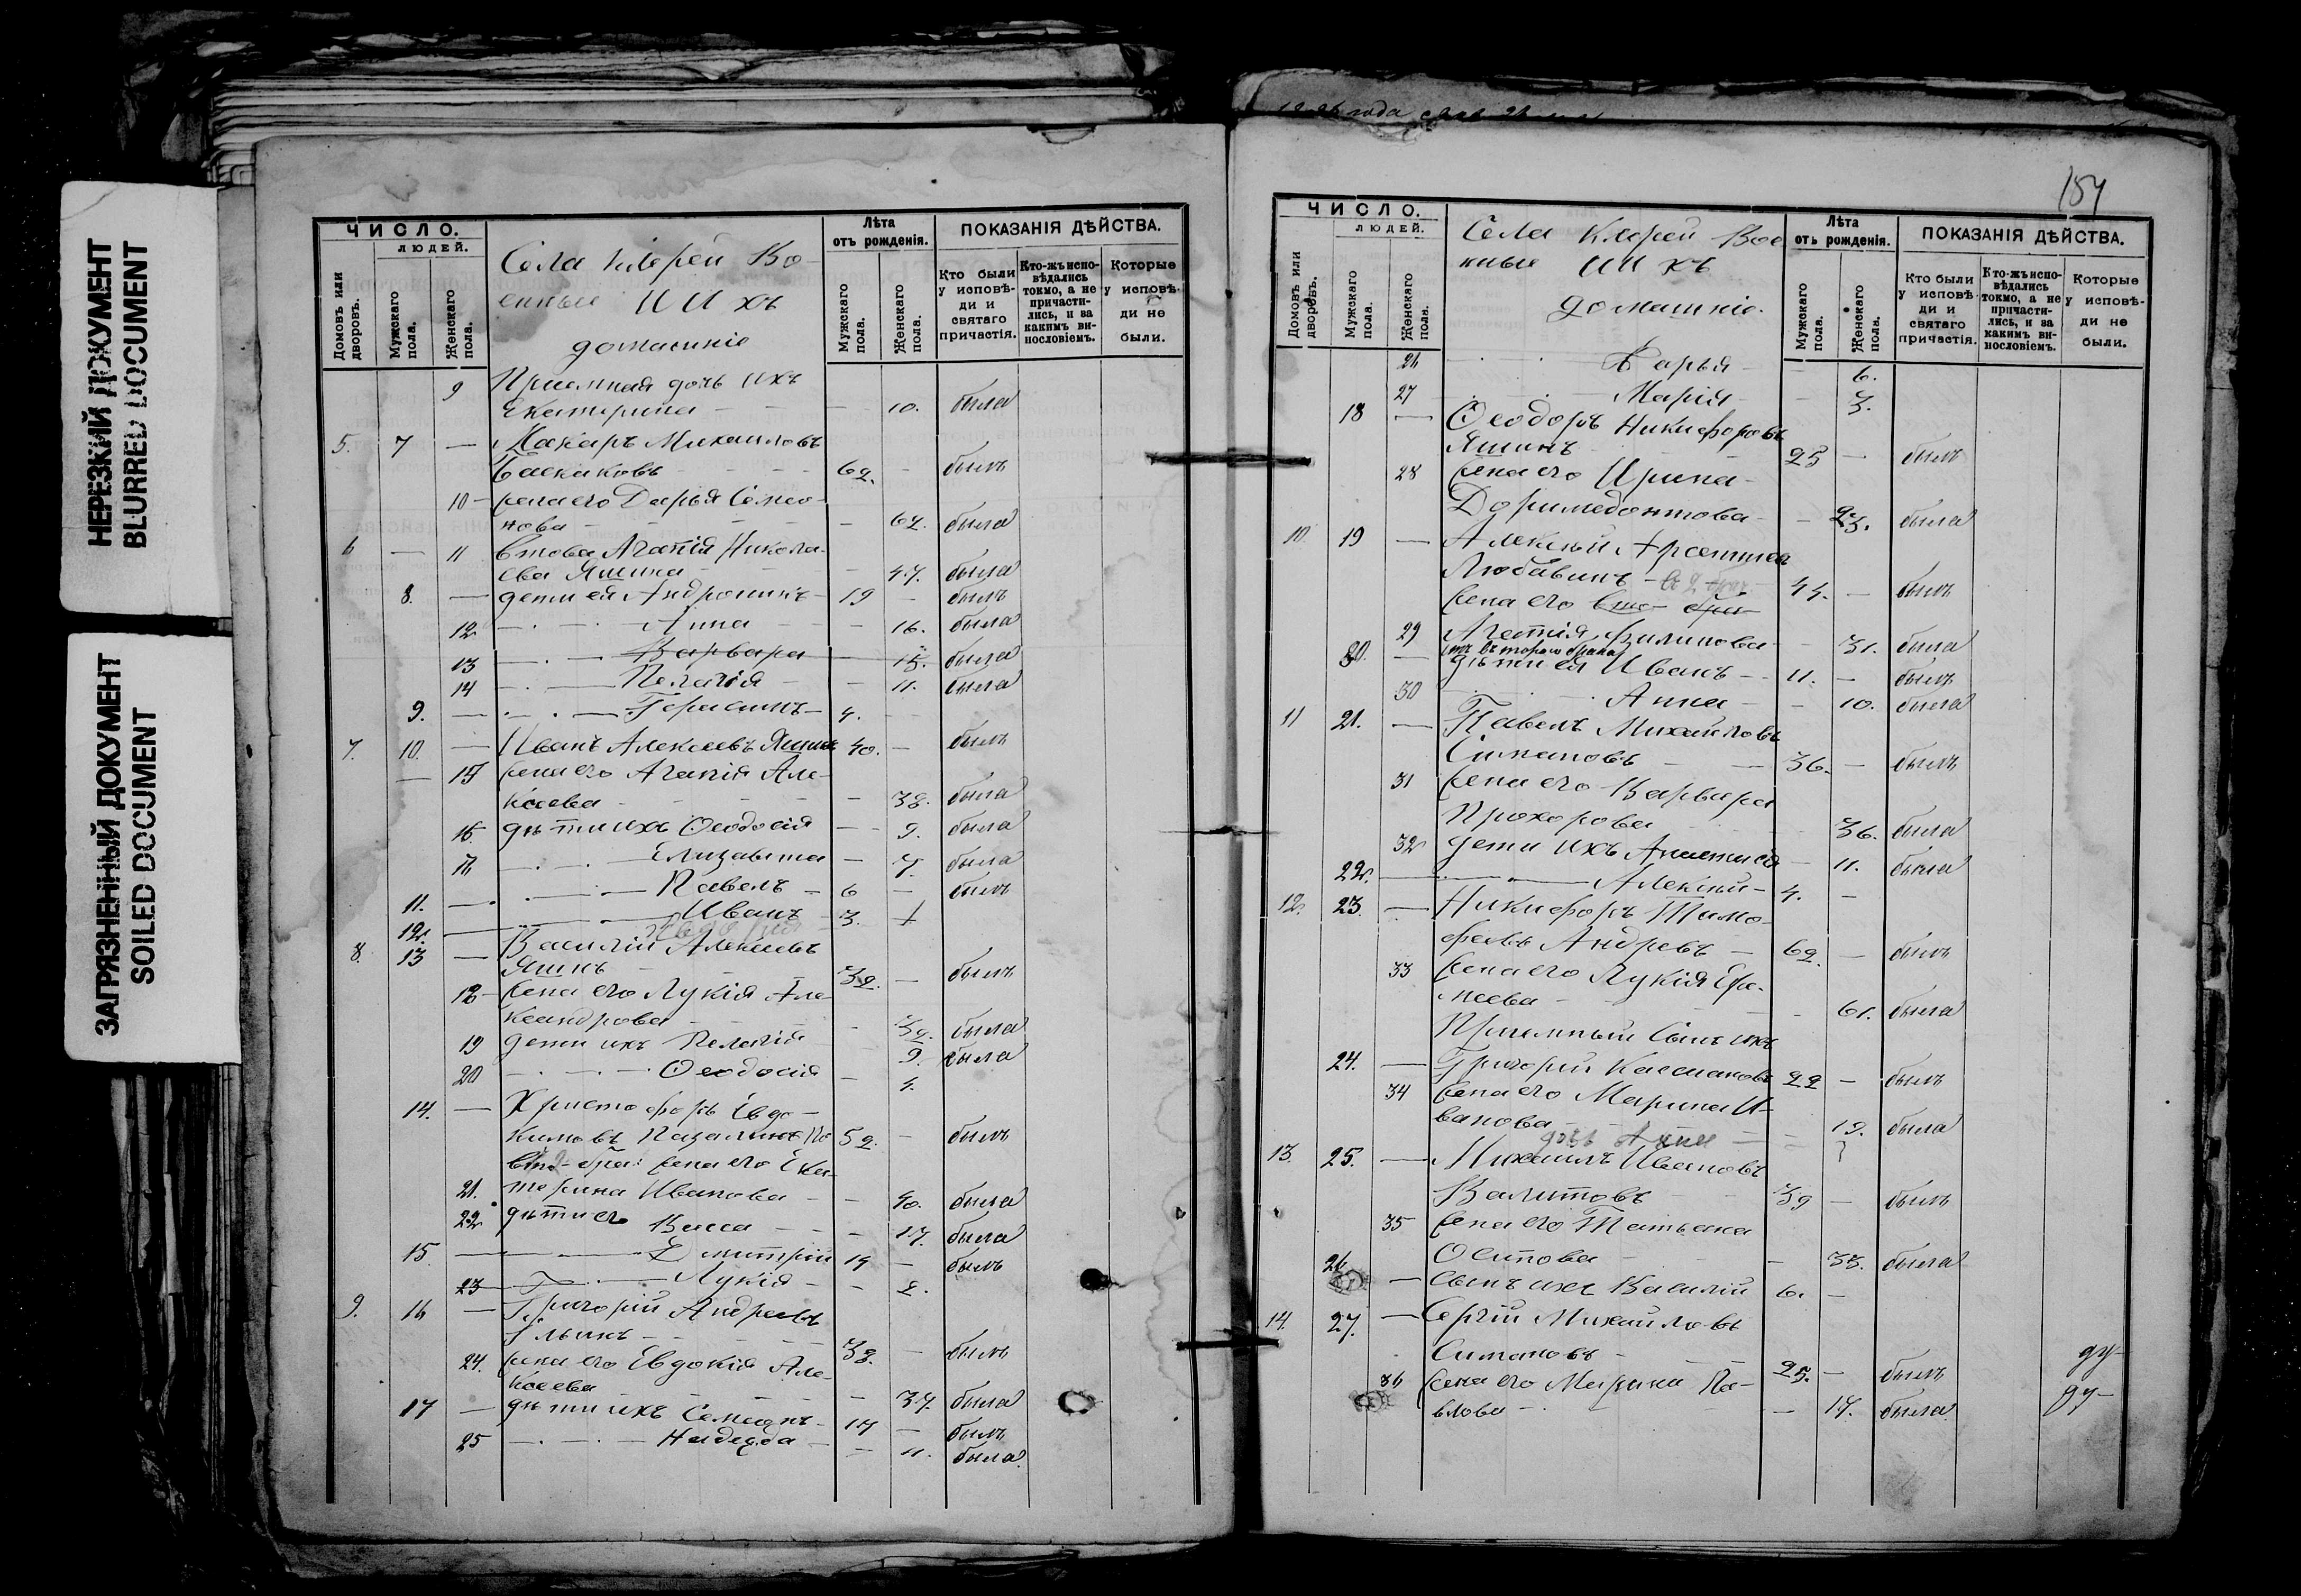 НЕРЕЗКИЙ ДОКУМЕНТ
BLURRED DOCUMENT
ЗАГРЯЗНЕННЫЙ ДОКУМЕНТ
SOILED DOCUMENT
ЧИСЛО.
ЛЮДЕЙ.
Домовъ или дворовъ.
Мужскаго пола.
Женскаго пола.
Села Во-
енные И И хъ
домашніе
Лѣта
отъ рожденія.
Мужскаго пола.
Женскаго пола.
ПОКАЗАНІЯ ДѢЙСТВА.
Кто были у исповѣди и святаго причастія.
Кто-жъ исповѣдались токмо, а не причастились, и за какимъ винословіемъ.
Которые у исповѣди не были.
9 Приемная дочь ихъ
Екатерина 10. была
5. 7 — Макаръ Михаиловъ
62. — былъ
10 — жена его Дарья Семео-
нова — 62. была
6 — 11 Вдова Агапія Никола-
ева Яшина 47. была
8. — дети ея Андроникъ 19 — былъ
12 Анна — 16. была
13 Варвара 15. была
14 Пелагія — 11. была
9. — Герасимъ 4.
7. 10. — Иванъ Алексеевъ Яшинъ 40. — былъ
— 15 жена его Агапія Але-
ксеева — 38. была
16 дѣти ихъ Ѳеодосія — 9. была
17 Елизавета — 7. была
11. — Павелъ 6 — былъ
12. — Иванъ 3. +
8. 13 — Василій Алексеевъ
Яшинъ 32. — былъ
18 — жена его Лукія Але-
ксандрова — 32. была
19 дети ихъ Пелагія 9. была
20 Ѳеодосія — 4.
14. — Христофоръ Евдо-
кимовъ 52. — былъ
жена его Ека-
21. терина Иванова — 40. была
22 дѣти его Васса — 17. была
15 — Дмитрій 14 — былъ
23 Лукія — 2.
9. 16 — Григорій Андреевъ
Ильинъ 38. — былъ
24. жена его Евдокія Але-
ксеева — 37. была
17 — дѣти ихъ Семеонъ 17 — былъ
25 Надежда — 11. была
154
ЧИСЛО.
ЛЮДЕЙ.
Домовъ или дворовъ.
Мужскаго пола.
Женскаго пола.
Села Вое
нные И И хъ
домашніе.
Лѣта
отъ рожденія.
Мужскаго пола.
Женскаго пола.
ПОКАЗАНІЯ ДѢЙСТВА.
Кто были у исповѣди и святаго причастія.
Кто-жъ исповѣдались токмо, а не причастились, и за какимъ винословіемъ.
Которые у исповѣди не были.
26 Дарья — 6.
27 Марія — 3.
18 — Ѳеодоръ Никифоровъ
Яшинъ 25 — былъ
28 жена его Ирина
Доримедонтова — 23. была
10. 19 — Алексѣй
Любавинъ 44. — былъ
жена его
29 Агапія Филипова — 31. была
20. — дѣти ея Иванъ 11. — былъ
30 Анна — 10. была
11 21. — Павелъ Михайловъ
Симановъ 36. — былъ
31 жена его Варвара
Прохорова 36. была
32 дети ихъ Анастасія — 11. была
22. — Алексѣй 4. —
12. 23. — Никифоръ Тимо-
феевъ Андреевъ 62. — былъ
33 жена его Лукія Ере-
меева — 61. была
Приемный сынъ ихъ
24. — Григорій 22 — былъ
34 жена его Марина И-
ванова — 19. была
дочь Анна
13. 25. — Михаилъ Ивановъ
39 — былъ
35 жена его Татьяна
Осипова — 33. была
26 — сынъ ихъ Василій 6. —
14. 27. — Сергій Михайловъ
Симановъ 25. — былъ
36 жена его Марина Па-
влова — 17. была